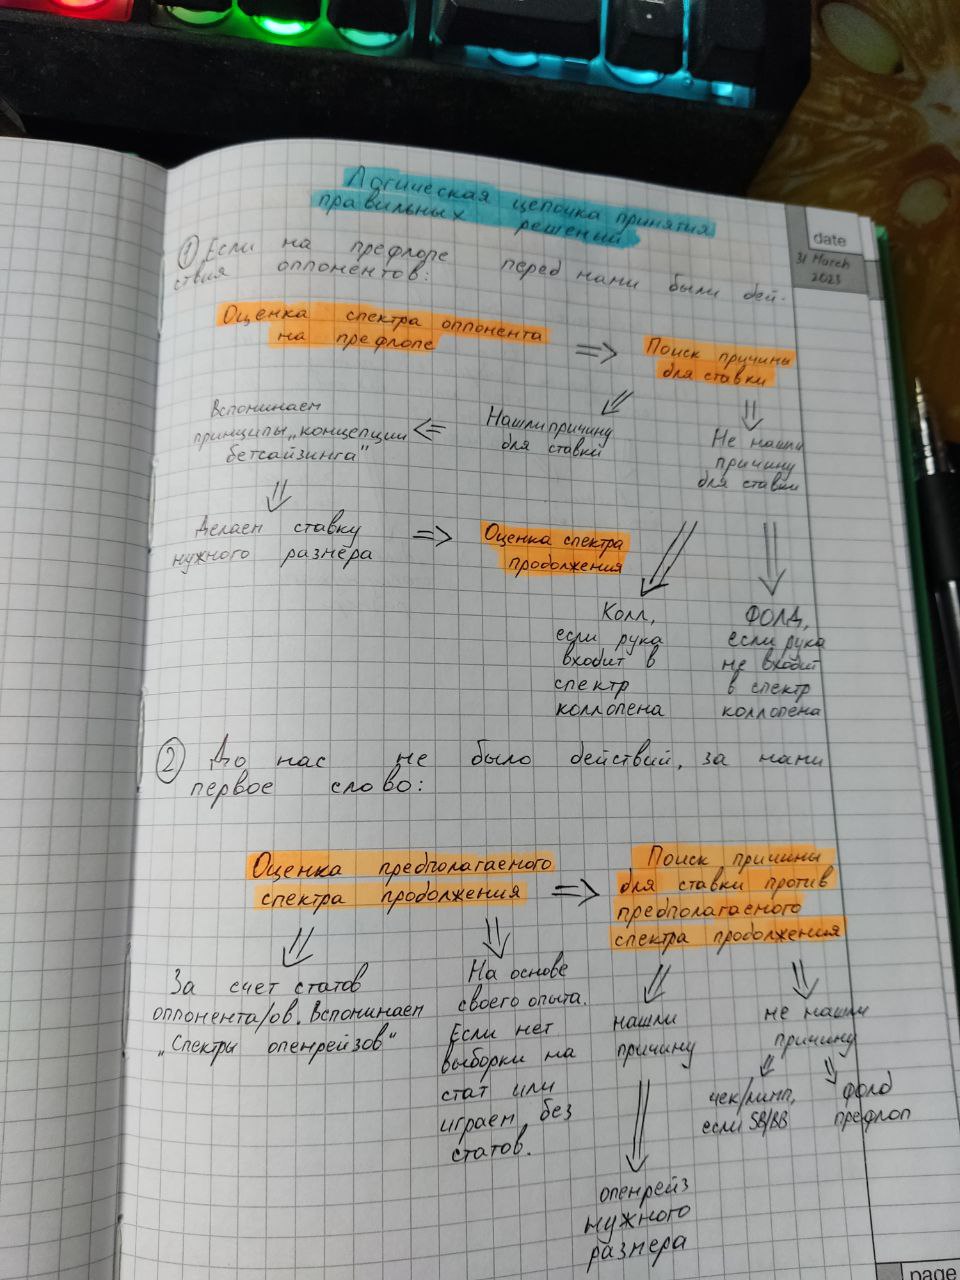 Логическая цепочка принятия
правильных решений
date
31 March
2023
① Если на префлопе перед нами были дей-
ствия оппонентов:
Оценка спектра оппонента
на префлопе
=>
Поиск причины
для ставки
Вспоминаем
принципы „концепции
бетсайзинга"
<=
Нашли причину
для ставки
Не нашли
причину
для ставки
Делаем ставку
нужного размера
=>
Оценка спектра
продолжения
Колл,
если рука
входит в
спектр
коллопена
ФОЛД,
если рука
не входит
в спектр
коллопена
② До нас не было действий, за нами
первое слово:
Оценка предполагаемого
спектра продолжения
=>
Поиск причины
для ставки против
предполагаемого
спектра продолжения
За счет статов
оппонента/ов. Вспоминаем
„Спектры опенрейзов"
На основе
своего опыта.
Если нет
выборки на
стат или
играем без
статов.
нашли
причину
не нашли
причину
чек/лимп,
если SB/BB
фолд
префлоп
опенрейз
нужного
размера
page